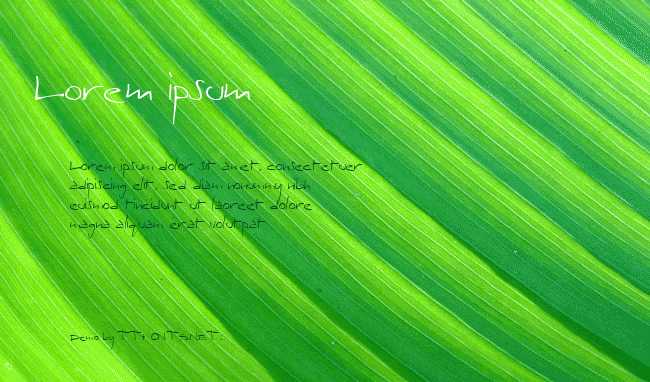 Lorem ipsum
Lorem ipsum dolor sit amet, consectetuer
adipiscing elit, sed diam nonummy nibh
euismod tincidunt ut laoreet dolore
magna aliquam erat volutpat.
Demo by TTFONTS.NET.